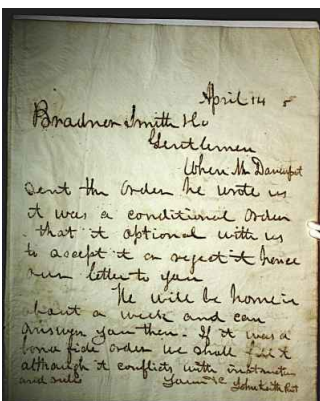 April 14
Bradner Smith & Co
Gentlemen
When Mr Davenport
sent the order he wrote us
it was a conditional order
that it optional with us
to accept it or reject it hence
our letter to you
He will be home in
about a week and can
answer you then. If it was a
bona fide order we shall fill it
although it conflicts with instruction
and rules
Yours &c John Keith